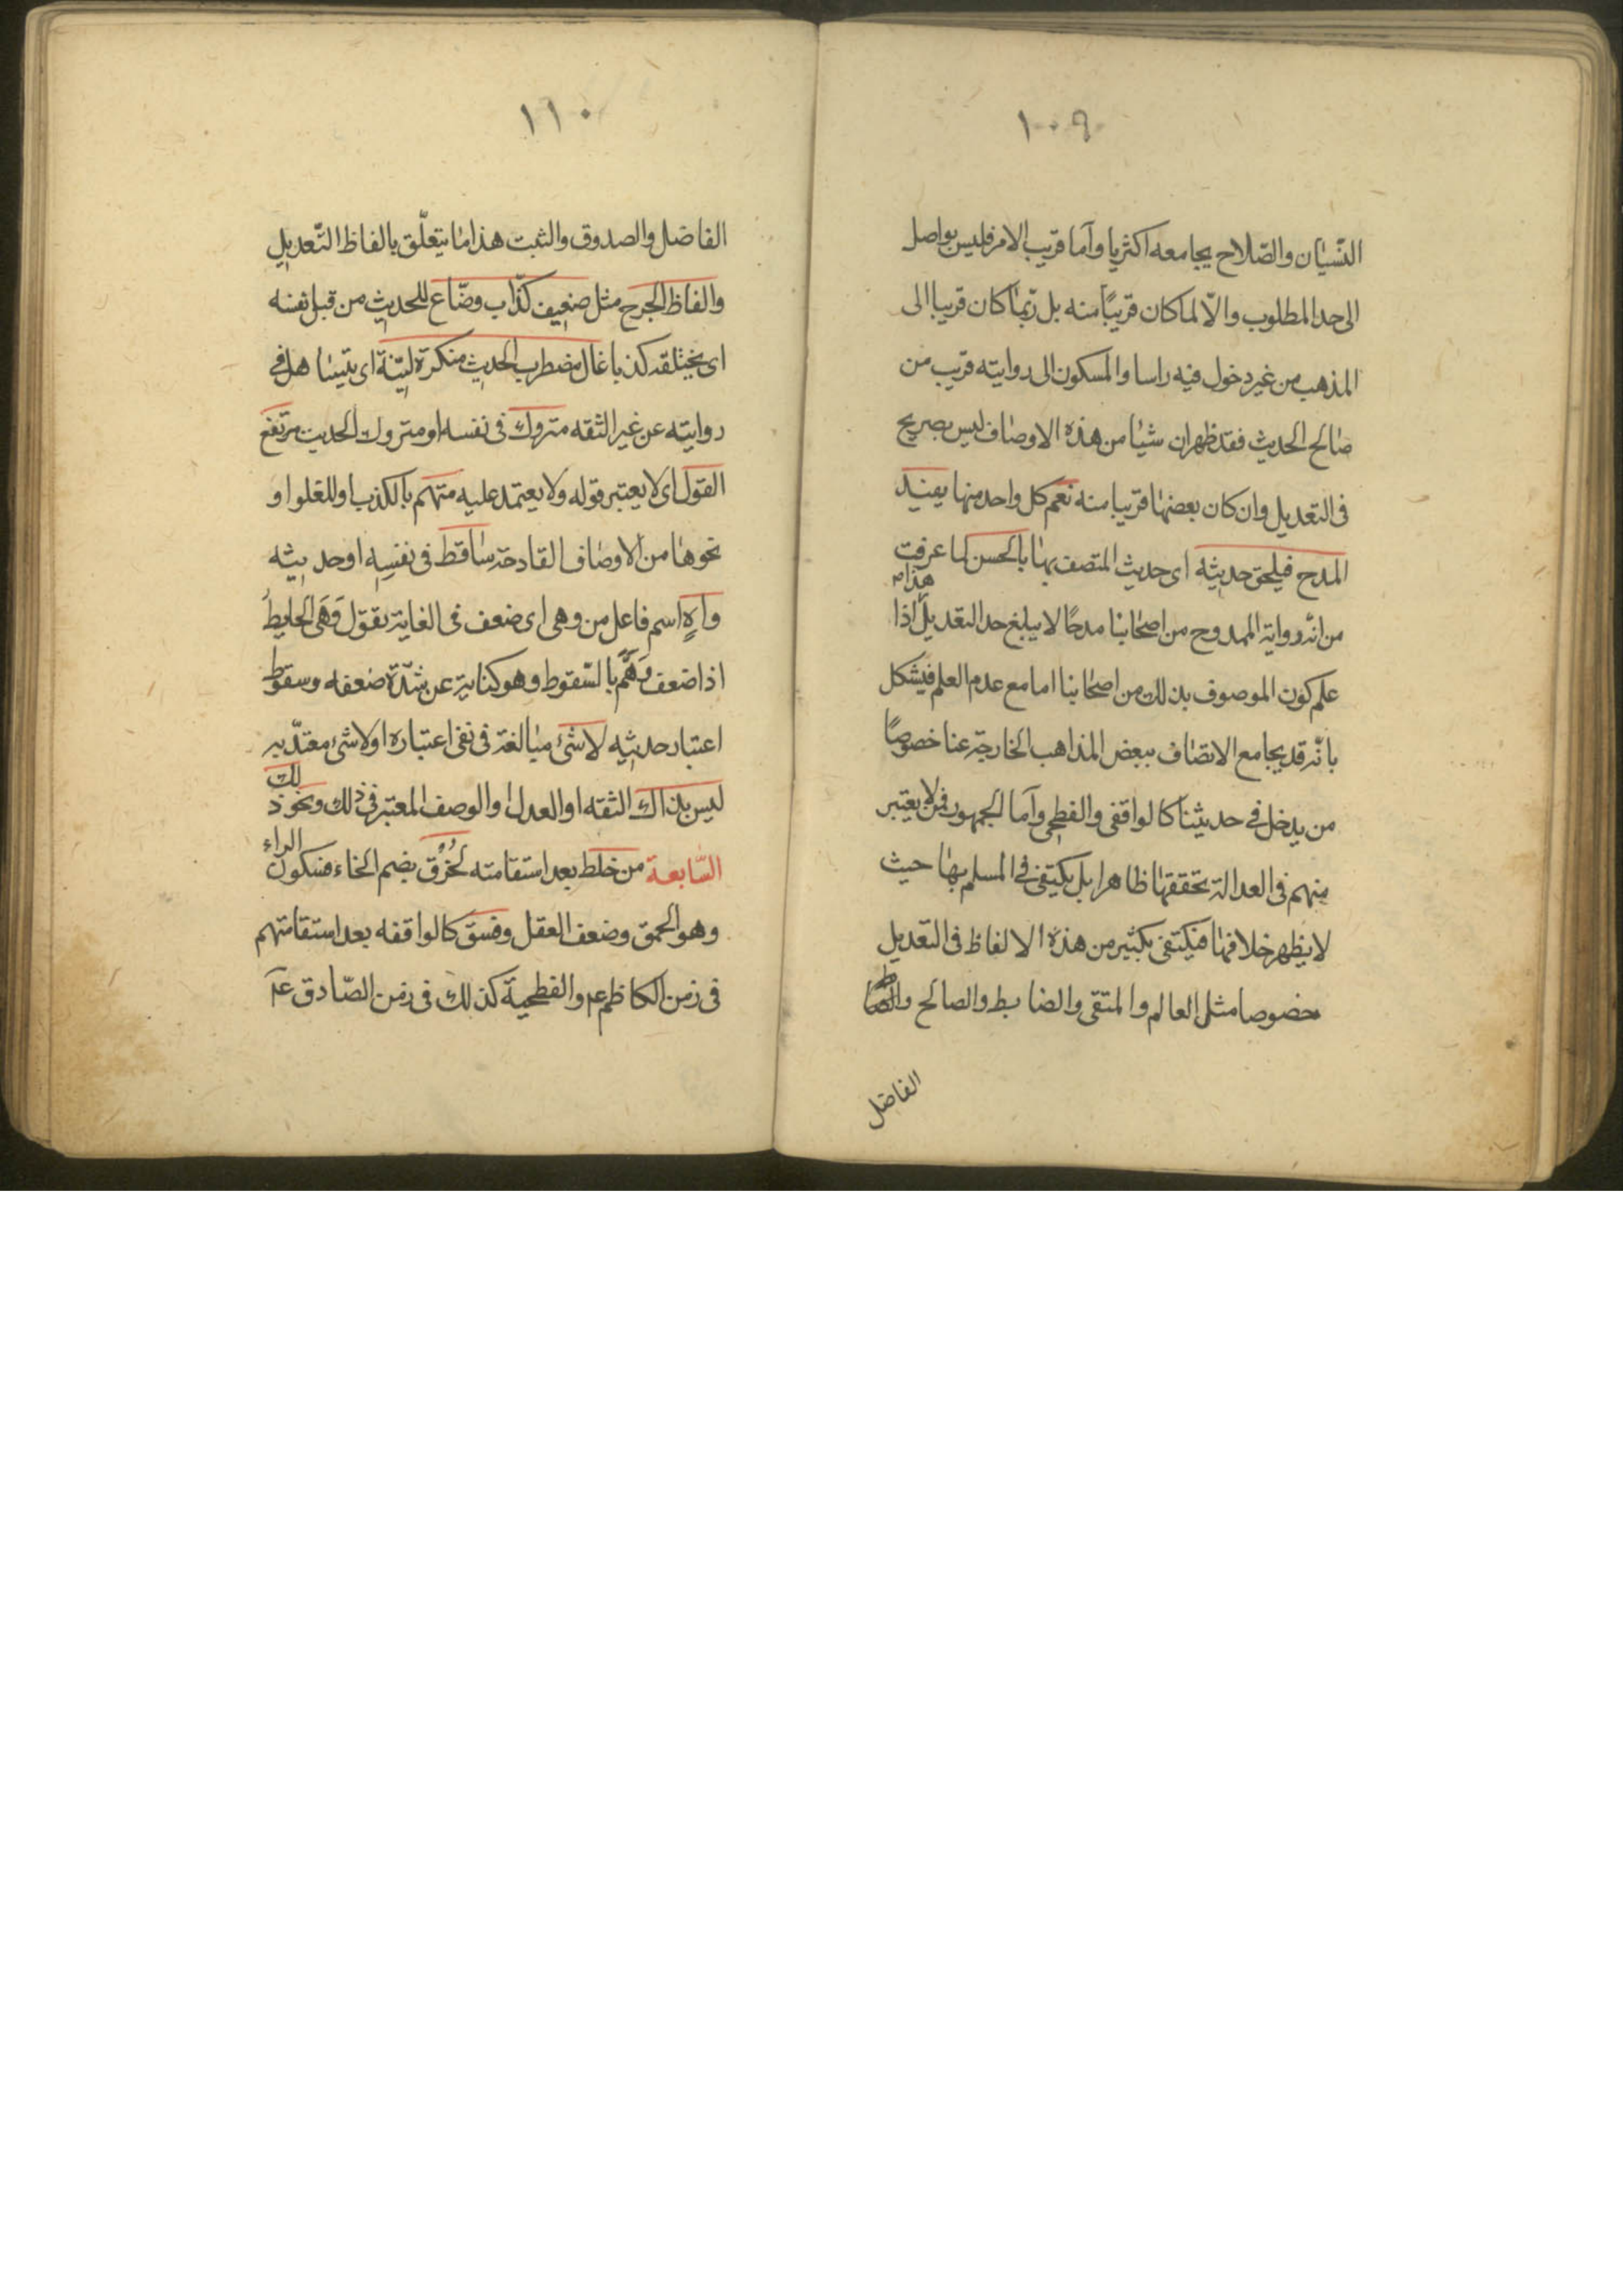 ١٠٩
النّسيان والصّلاح يجامعه اكثريا وأما قريب الامر فليس بواصل
الى حد المطلوب والّا لما كان قريبًا منه بل ربّما كان قريبا الى
المذهب من غير دخول فيه راسا والمسكون الى روايته قريب من
صالح الحديث فقد ظهر ان شيا من هذه الاوصاف ليس بصريح
فى التعديل وان كان بعضها قريبا منه نعم كل واحد منها يفيد
المدح فيلحق حديثه اى حديث المتصف بها بالحسن لما عرفت
هذا
من انّه رواية الممدوح من اصحابنا مدحًا لا يبلغ حد التعديل اذا
علم كون الموصوف بذلك من اصحابنا اما مع عدم العلم فيشكل
بانّه قد يجامع الاتصاف ببعض المذاهب الخارجة عنا خصوصًا
من يدخل فى حديثنا كالواقفى والفطحى وأما الجمهور فمن لا يعتبر
منهم فى العدالة تحققها ظاهرا بل يكتفى فى المسلم بها حيث
لا يظهر خلافها فيكتفى بكثير من هذه الالفاظ فى التعديل
خصوصا مثل العالم والمتقى والضابط والصالح والصا
الفاضل
١١٠
الفاضل والصدوق والثبت هذا ما يتعلّق بالفاظ التّعديل
والفاظ الجرح مثل ضعيف كذّاب وضّاع للحديث من قبل نفسه
اى يختلقه كذبا غال مضطرب الحديث منكرة ليّنة اى يتيسا هل فى
روايته عن غير الثقه متروك فى نفسه او متروك الحديث مرتفع
القول اى لا يعتبر قوله ولا يعتمد عليه متهم بالكذب او للغلو او
نحوها من الاوصاف القادحة ساقط فى نفسه او حديثه
واهٍ اسم فاعل من وهى اى ضعف فى الغاية تقول وَهَى الحايطُ
اذا ضعف وَهَّم بالسّقوط وهو كناية عن شدّة ضعفه وسقوط
اعتبار حديثه لا شئ مبالغة فى نفى اعتباره او لا شئ معتدّ به
ليس بذاك الثقه او العدل او الوصف المعتبر فى ذلك ونحو ذ
لك
السّابعة من خلط بعد استقامته لخُرْق بضم الخاء فسكون
الراء
وهو الحمق وضعف العقل وفسق كالواقفه بعد استقامتهم
فى زمن الكاظم ع م والفطحية كذلك فى زمن الصّادق ع م